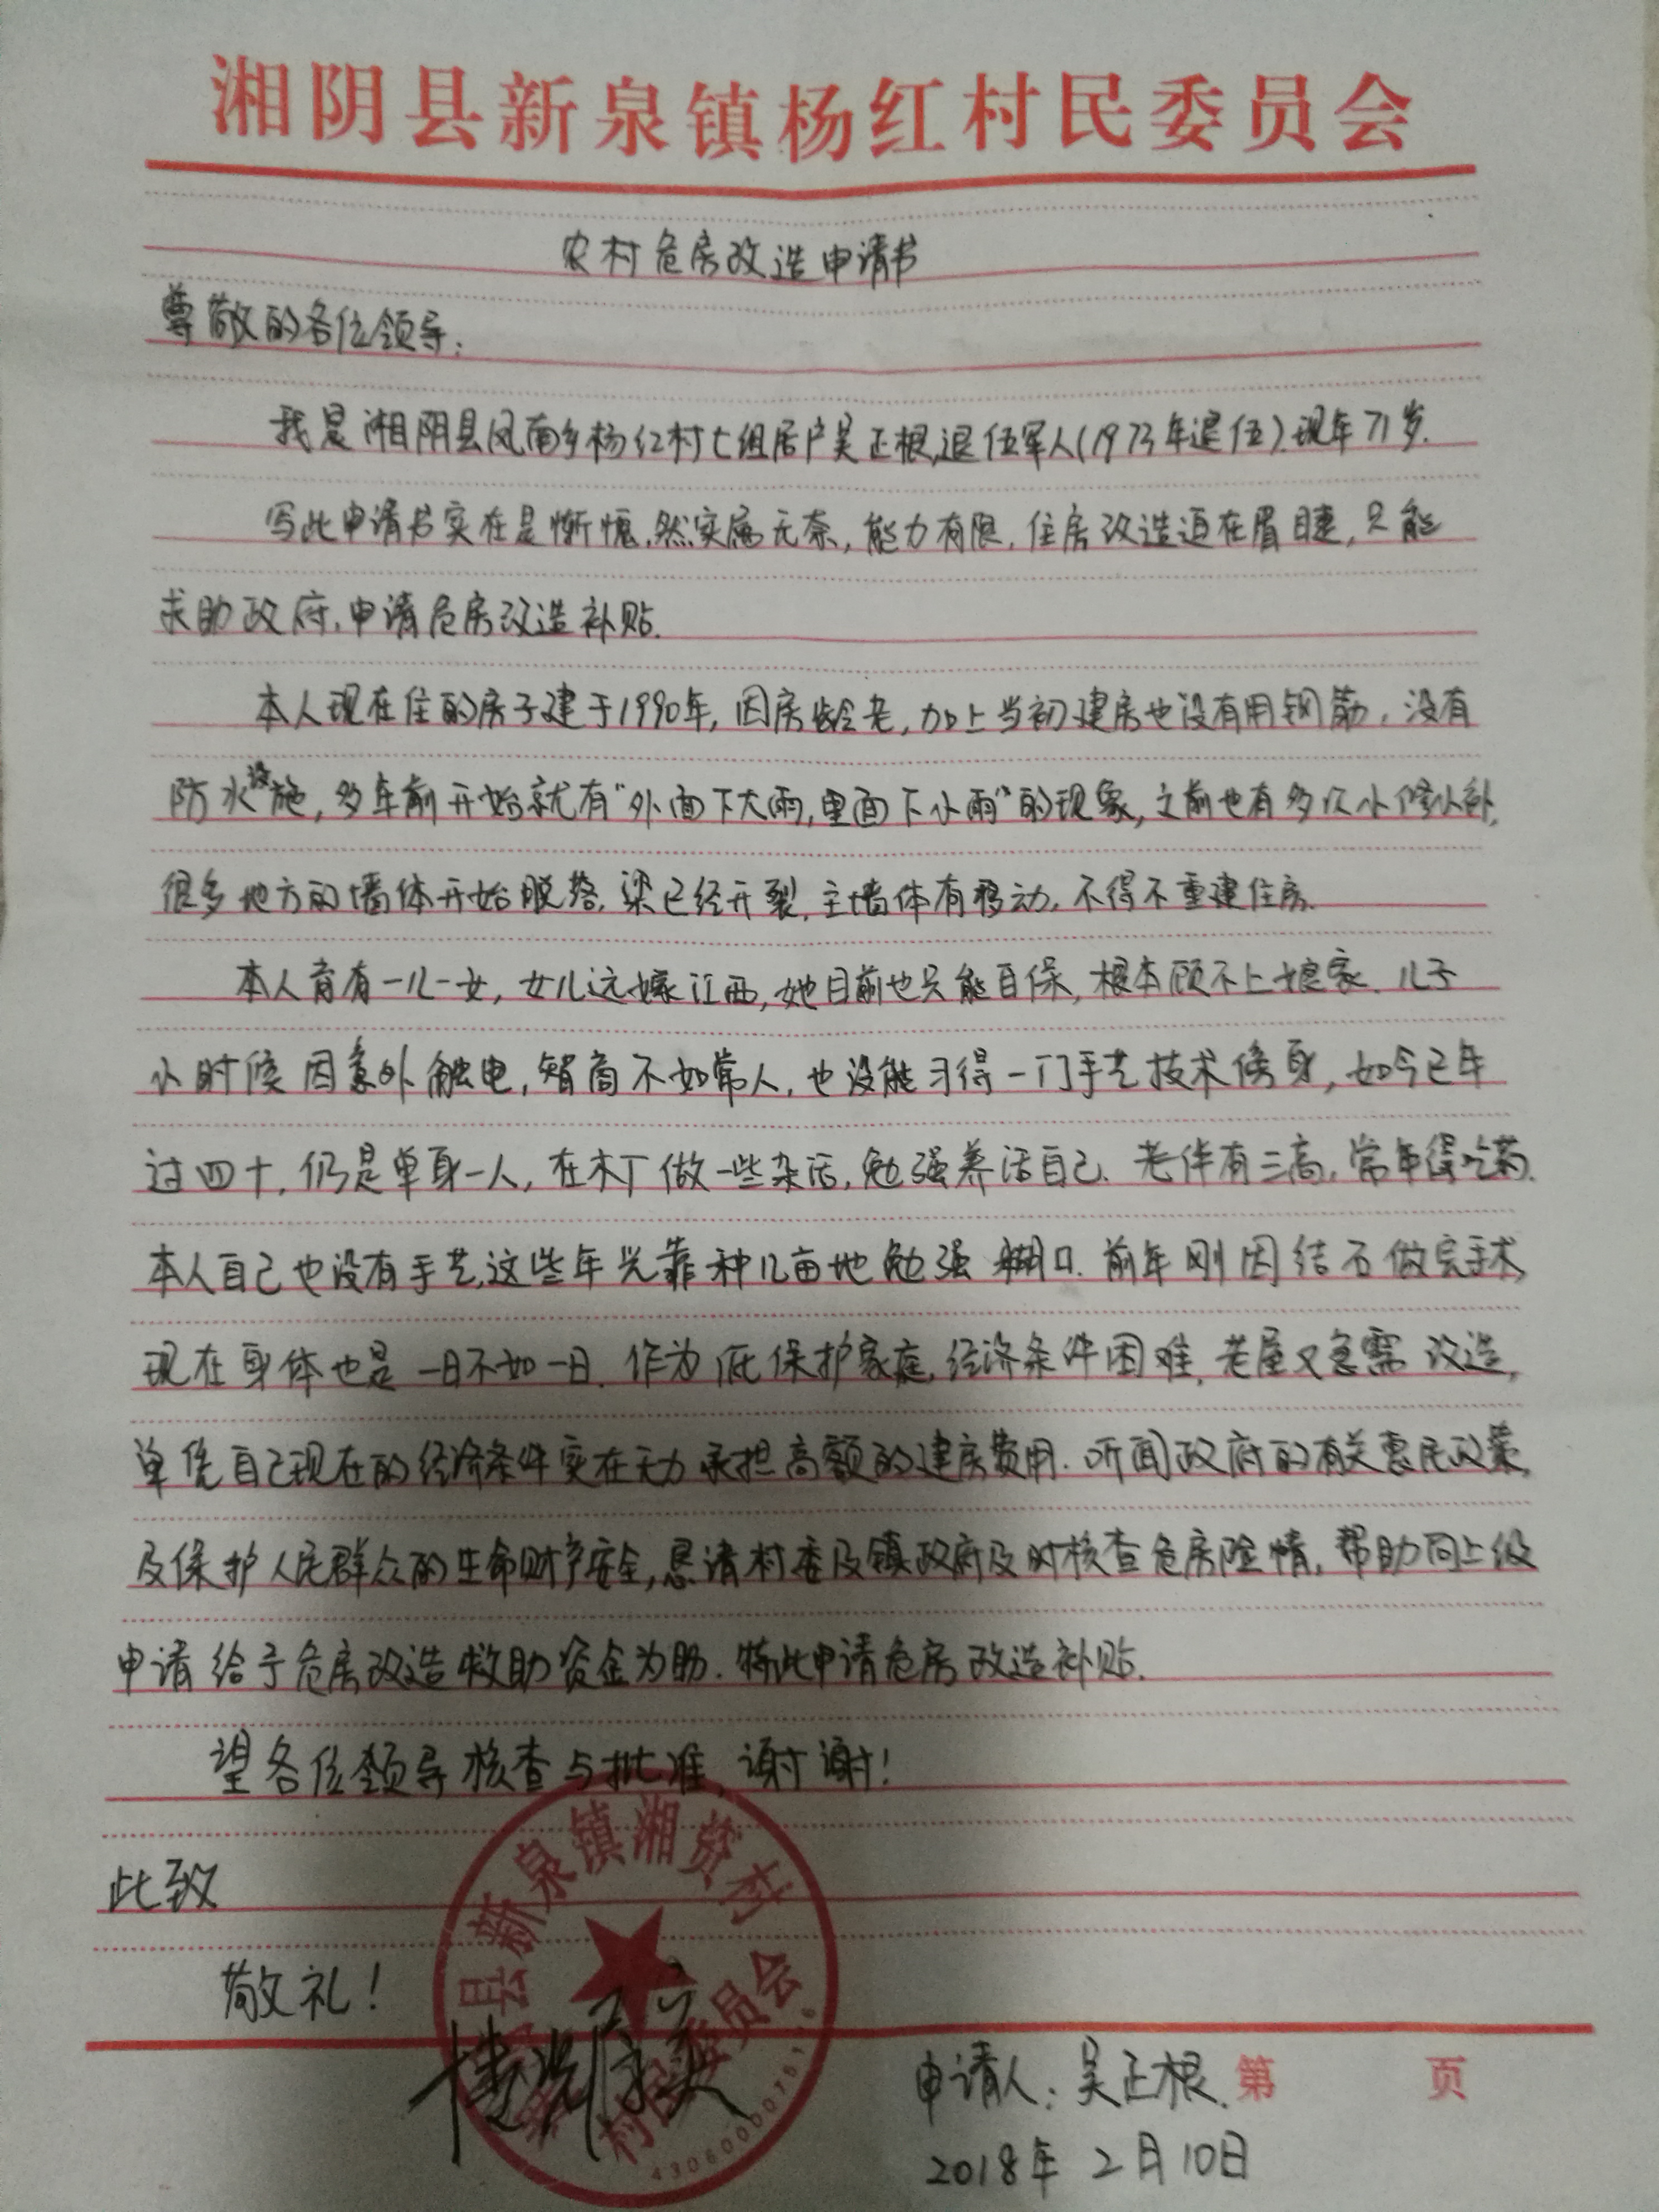 湘阴县新泉镇杨红村民委员会
农村危房改造申请书
尊敬的各位领导:
我是湘阴县凤南乡杨红村七组居户吴正根,退伍军人(1973年退伍).现年71岁.
写此申请书实在是惭愧,然实属无奈,能力有限,住房改造迫在眉睫,只能
求助政府,申请危房改造补贴.
本人现在住的房子建于1990年,因房龄老,加上当初建房也没有用钢筋,没有
防水设施,多年前开始就有“外面下大雨,里面下小雨”的现象,之前也有多次小修小补,
很多地方的墙体开始脱落,梁已经开裂,主墙体有移动,不得不重建住房.
本人育有一儿一女,女儿远嫁江西,她目前也只能自保,根本顾不上娘家.儿子
小时候因意外触电,智商不如常人,也没能习得一门手艺技术傍身,如今已年
过四十,仍是单身一人,在木厂做一些杂活,勉强养活自己.老伴有三高,常年得吃药.
本人自己也没有手艺,这些年光靠种几亩地勉强糊口.前年刚因结石做完手术,
现在身体也是一日不如一日.作为低保护家庭,经济条件困难,老屋又急需改造,
单凭自己现在的经济条件实在无力承担高额的建房费用.听闻政府的有关惠民政策,
及保护人民群众的生命财产安全,恳请村委及镇政府及时核查危房险情,帮助向上级
申请给予危房改造救助资金为盼.特此申请危房改造补贴.
望各位领导核查与批准,谢谢!
此致
敬礼!
县新泉镇湘资村
村民委员会
申请人:吴正根.
第 页
2018年2月10日